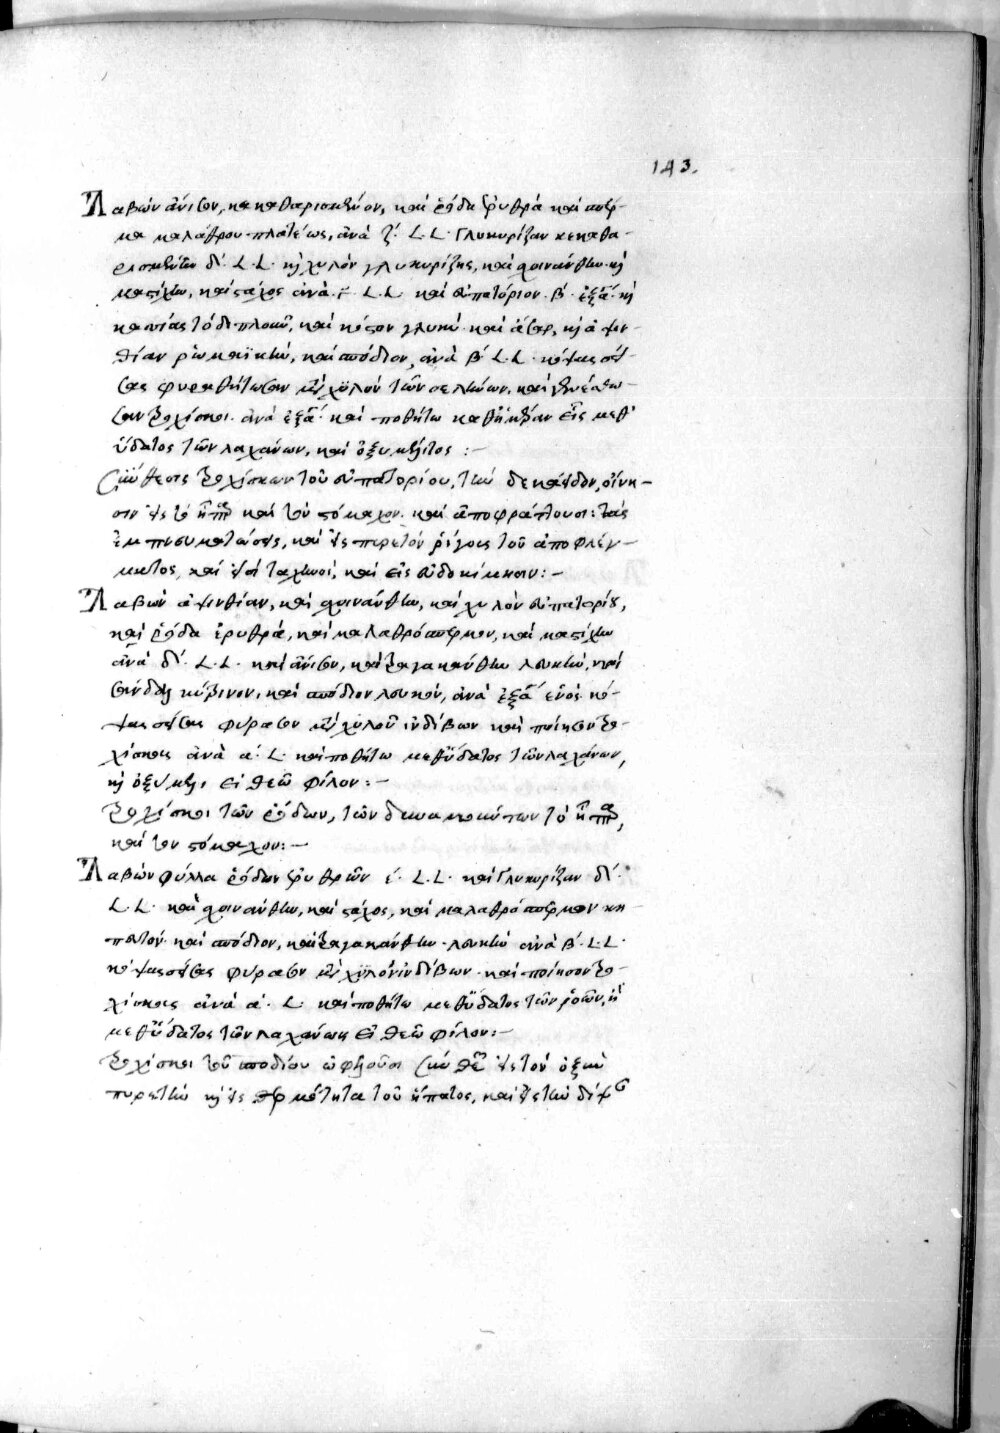 143.
Λαβὼν ἄνισον, κεκαθαρισμένον, καὶ ῥόδα ἐρυθρὰ καὶ σπέρ-
μα μαλάθρου πλατέως, ἀνὰ ζ΄. L. L. Γλυκυρίζαν κεκαθα-
ρισμένην δ΄. L. L. κὴ χυλὸν γλυκυρίζης, καὶ σχοινάνθην κὴ
μαστίχην, καὶ στάχος ἀνὰ L. L. καὶ εὐπατόριον. β. ἑξάγ. κὴ
κασσίας τὸ διπλοῦν, καὶ κόστον γλυκὺ καὶ ἄσαρ, κὴ ἀψιν-
θίαν ῥωμαϊκὴν, καὶ σπόδιον, ἀνὰ β΄ L. L. κόψας σή-
σας φυραθήτωσαν μετὰ χυλοῦ τῶν σελίνων, καὶ γινέσθω-
σαν τροχίσκοι ἀνὰ ἑξάγ. καὶ ποθήτω καθημέραν εἷς μεθ'
ὕδατος τῶν λαχάνων, καὶ ὀξυμέλιτος :-
Σύνθεσις τροχίσκων τοῦ εὐπατορίου, τὴν
καὶ τὸν στόμαχον. καὶ ἀποφράττουσι: τὰς
ἐμπνευματώσεις, καὶ εἰς πυρετὸν ῥίγους τοῦ ἀπὸ φλέγ-
ματος, καὶ καὶ εἰς εὐδοκίμησιν:-
Λαβὼν ἀψινθίαν, καὶ σχοινάνθην, καὶ χυλὸν εὐπατορίου,
καὶ ῥόδα ἐρυθρὰ, καὶ μαλαθρόσπερμον, καὶ μαστίχην
ἀνὰ δ΄. L. L. καὶ ἄνισον, καὶ τραγακάνθην λευκὴν, καὶ
σάνδαλ κύβινον, καὶ σπόδιον λευκὸν, ἀνὰ ἑξάγ ἑνὸς κό-
ψας σήσας φύρασον μετὰ χυλοῦ ἰνδίβων καὶ ποίησον τρο-
χίσκους ἀνὰ α΄. L. καὶ ποθήτω μεθ' ὕδατος τῶν λαχάνων,
κὴ ὀξύμελι, εἰ θεῷ φίλον:-
Τροχίσκοι τῶν ῥόδων, τῶν δυναμούντων τὸ
καὶ τὸν στόμαχον:-
Λαβὼν φύλλα ῥόδων ἐρυθρῶν ε΄. L. L. καὶ Γλυκυρίζαν δ΄.
L. L. καὶ σχοινάνθην, καὶ στάχος, καὶ μαλαθρόσπερμον κη-
πευτὸν καὶ σπόδιον, καὶ τραγακάνθην λευκὴν ἀνὰ β΄. L. L.
κόψας σήσας φύρασον μετὰ χυλὸν ἰνδίβων καὶ ποίησον τρο-
χίσκους ἀνὰ α΄. L. καὶ ποθήτω μεθ' ὕδατος τῶν ῥοῶν, ἢ
μεθ' ὕδατος τῶν λαχάνων εἰ θεῷ φίλον:-
Τροχίσκοι τοῦ σποδίου ὠφελοῦσι σὺν θεῷ εἰς τὸν ὀξὺν
πυρετὸν κὴ εἰς θερμότητα τοῦ ἥπατος, καὶ εἰς τὴν δίψ